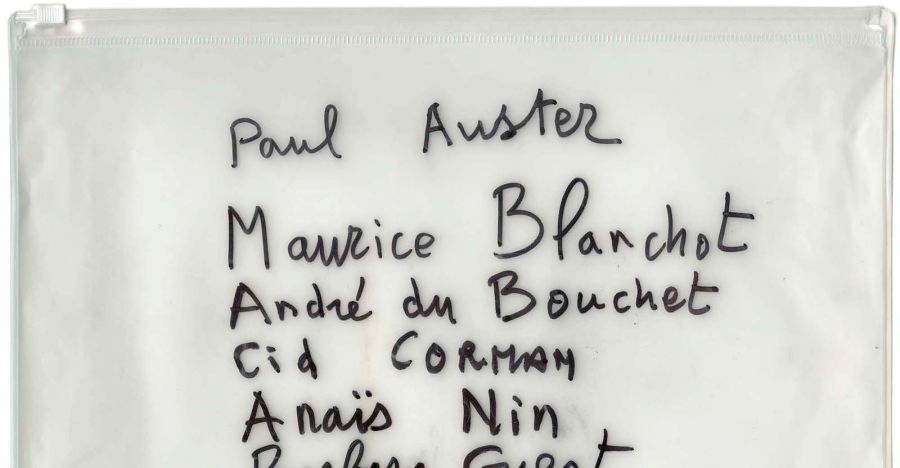 Paul Auster
Maurice Blanchot
André du Bouchet
Cid CORMAN
Anaïs Nin
Barbara Guest